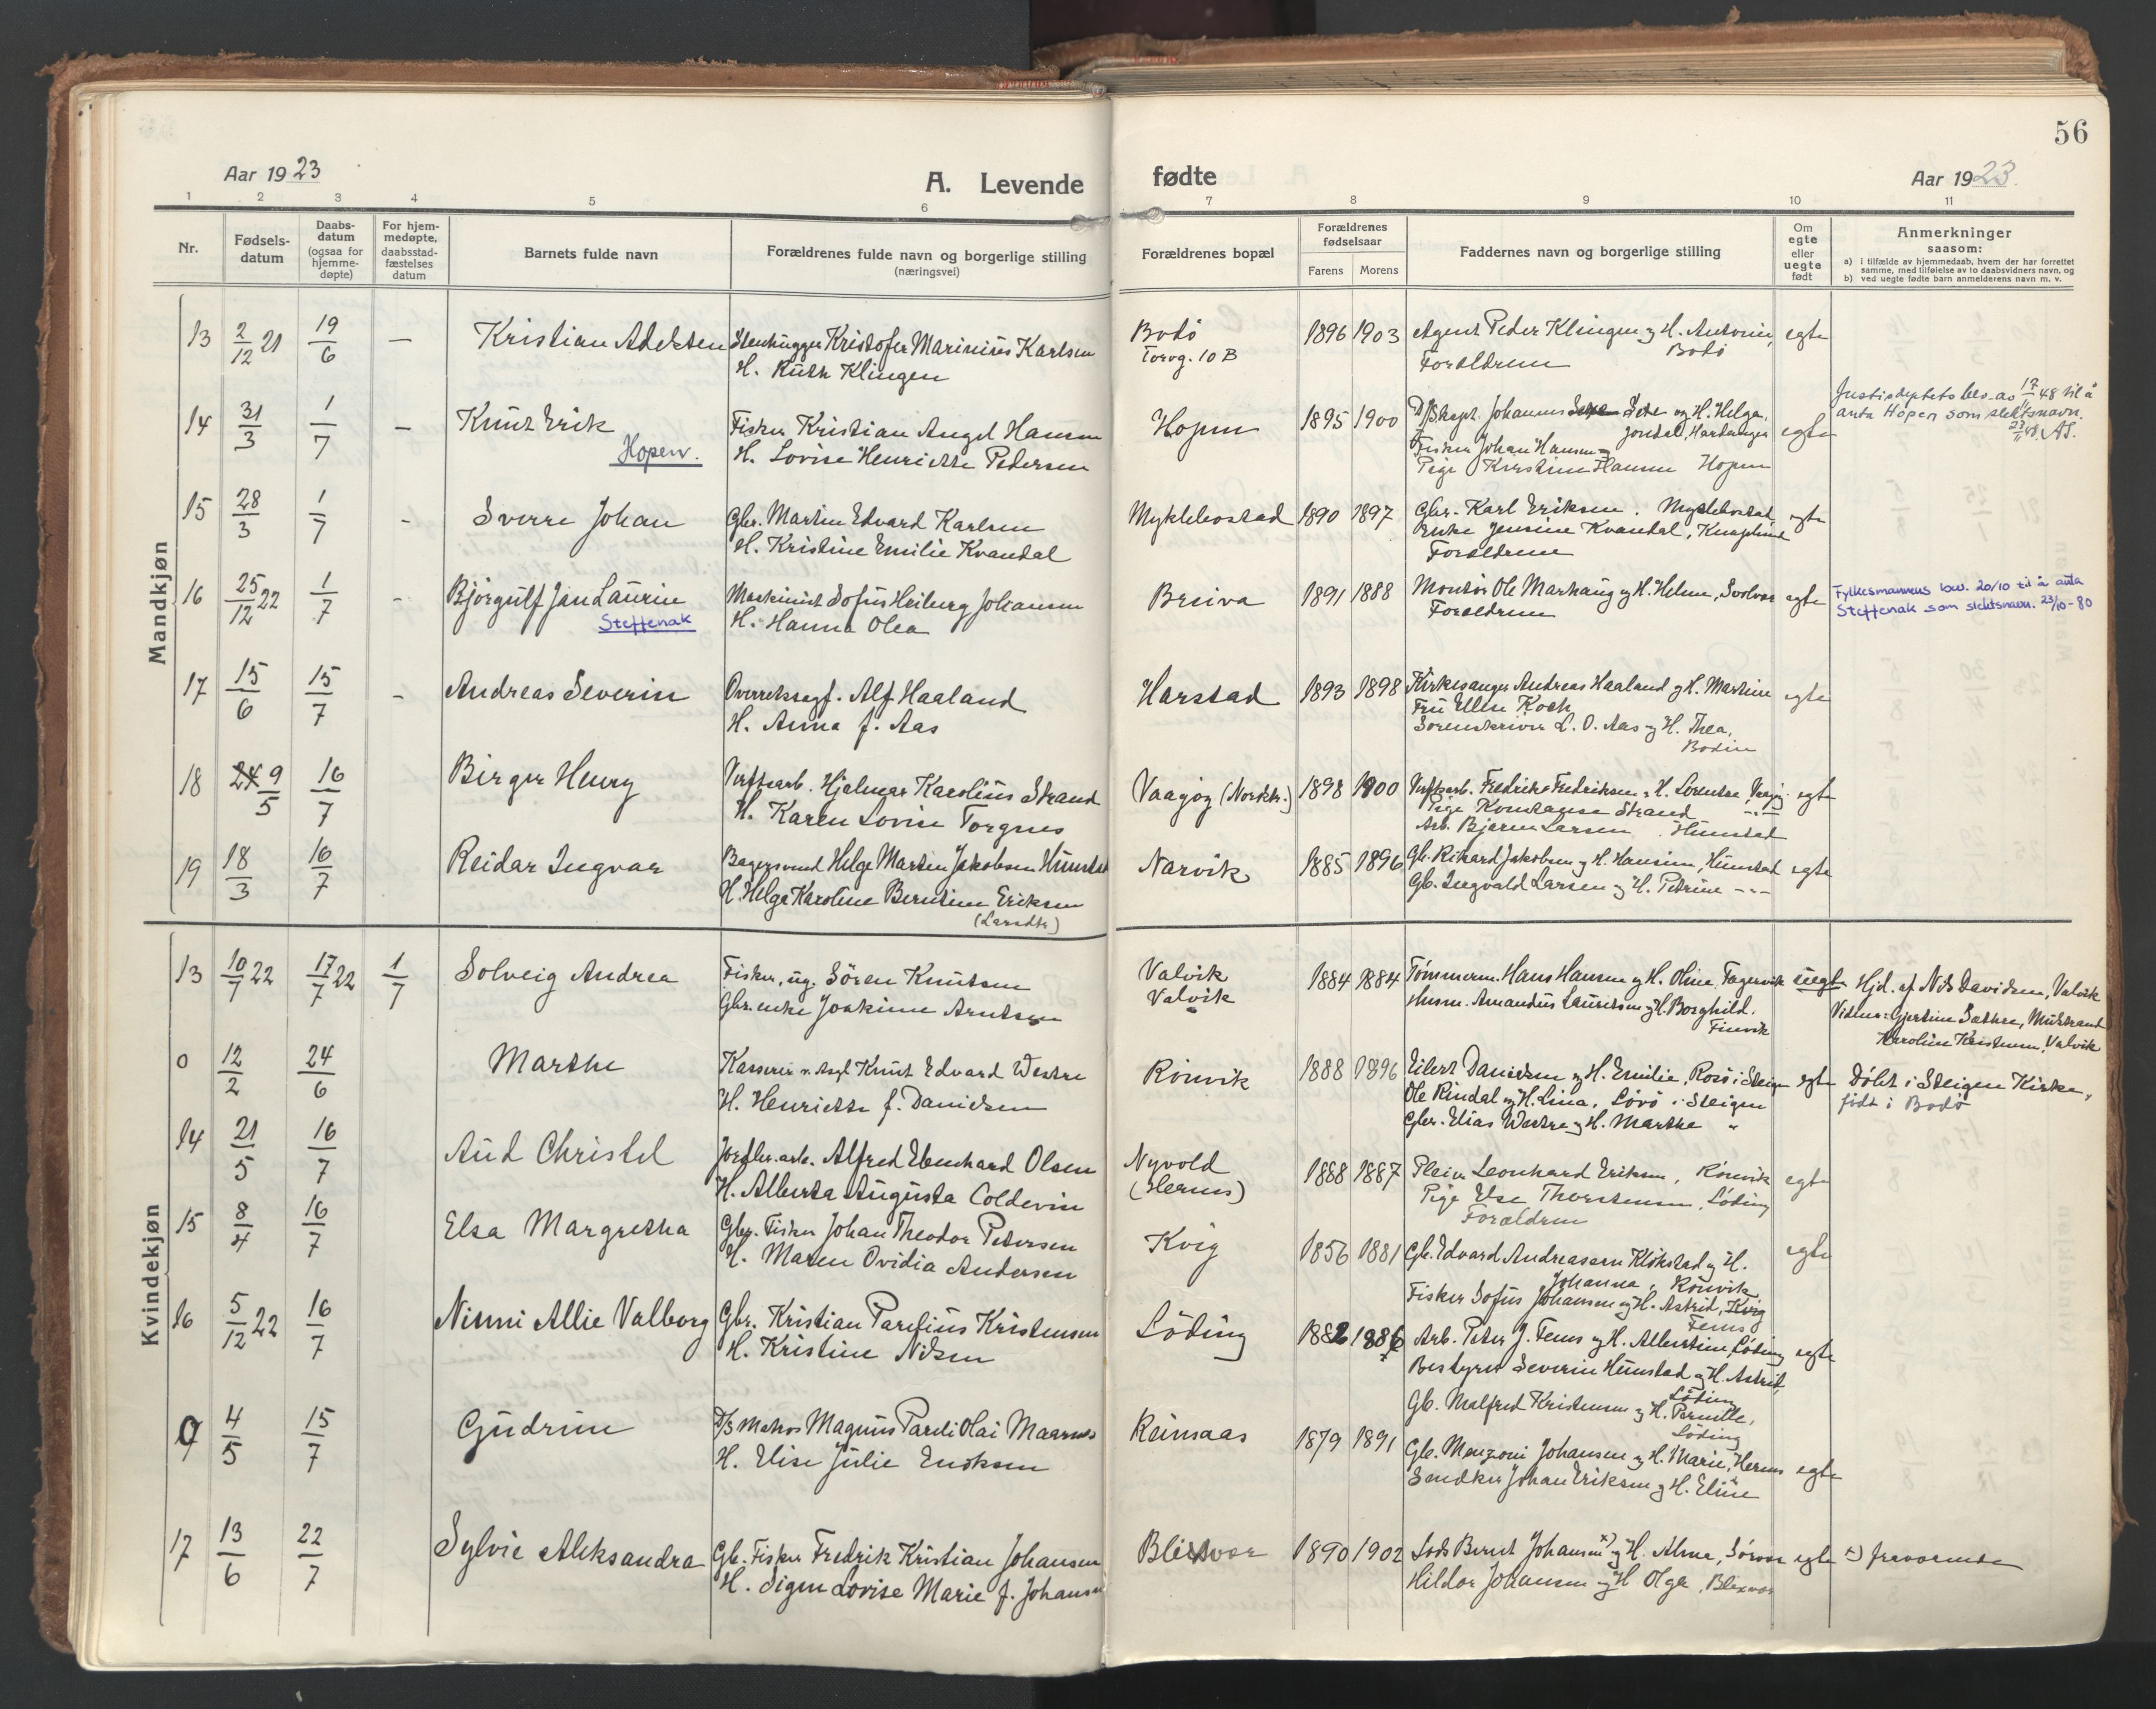 56
Aar 1923
A. Levende fødte
Aar 1923.
1 2 3 4 5 6 7 8 9 10 11
Nr.
Fødsels-
datum
Daabs-
datum
(ogsaa for
hjemme-
døpte)
For hjem-
medøpte,
daabsstad-
fæstelses
datum
Barnets fulde navn
Forældrenes fulde navn og borgerlige stilling
(næringsvei)
Forældrenes bopæl
Forældrenes
fødselsaar
Farens Morens
Faddernes navn og borgerlige stilling
Om
egte
eller
uegte
født
Anmerkninger
saasom:
a) i tilfælde av hjemmedaab, hvem der har forrettet
samme, med tilføielse av to daabsvidners navn, og
b) ved uegte fødte barn anmelderens navn m. v.
Mandkjøn
13 2/12 21 19/6 — Kristian Adelsten Stenhugger Kristofer Marinius Karlsen
H. Ruth Klingen
Bodö
Torvg. 10 B
1896 1903 Agent Peder Klingen og H. Antonie, egte
Bodö
Foreldrene
14 31/3 1/7 — Knut Erik
Hopen.
Fisker Kristian Angel Hansen
H. Lovise Henriette Pedersen
Hopen 1895 1900 D/Skapt. Johannes og H. Helga,
Jondal, Hardanger egte
Fisker Johan Hansen
Pige Kirstine Hansen Hopen
Justisdeptets bev. av 17/ 48 til å
anta Hopen som slektsnavn.
23/ 48. AS.
15 28/3 1/7 - Sverre Johan Gbr. Martin Edvard Karlsen
H. Kristine Emilie Kvandal
Myklebostad 1890 1897 Gbr. Karl Eriksen, Myklebostad egte
Enke Jensine Kvandal, Knaplund
Foreldrene
16 25/12 22 1/7 - Björgulf Jan Laurin
Steffenak
Maskinist Sofus Heiberg Johansen
H. Hanna Olea
Breiva 1891 1888 Montör Ole Marhaug og H. Helene, Svolvær egte
Foreldrene
Fylkesmannens bev. 20/10 til å anta
Steffenak som slektsnavn. 23/10-80
17 15/6 15/7 - Andreas Severin Overretssagf. Alf Haaland
H. Anna f. Aas
Harstad 1893 1898 Kirkesanger Andreas Haaland og H. Martine egte
Fru Ellen Koch
Sorenskriver L. O. Aas og H. Thea,
Bodin
18 9/5 16/7 Birger Henry Verftsarb. Hjalmar Karolius Strand
H. Karen Lovise Torgnes
Vaagöy (Nordstr.) 1898 1900 Verftsarb. Fredrik Fredriksen og H. Lorentse, Vaagöy egte
Pige Konstanse Strand -"-
Arb. Bjarne Larsen, Hunstad
19 18/3 16/7 Reidar Ingvar Bagersvend Helge Martin Jakobsen Hunstad
H. Helga Karoline Berntine Eriksen
(Larsdtr)
Narvik 1885 1896 Gb. Rikard Jakobsen og H. Hansine, Hunstad egte
Gb. Ingvald Larsen og H. Petrine -"-
Kvindekjøn
13 10/7 22 17/7 22 1/7 Solveig Andrea Fisker, ug. Sören Knutsen
Gbr. enke Joakime Arntsen
Valvik
Valvik
1884 1884 Tömmerm. Hans Hansen og H. Oline, Fagervik uegte
Husm. Amandus Lauritsen og H. Borghild,
Finvik
Hjd. af Nils Davidsen, Valvik
Vidner: Gjertine Sæthre, Mulstrand
Karoline Kristensen, Valvik
0 12/2 24/6 Marthe Kasserer v. Asyl Knut Edvard Westre
H. Henriette f. Danielsen
Rönvik 1888 1896 Eilert Danielsen og H. Emilie, Rosö i Steigen egte
Ole Rindal og H. Lina, Lövö i Steigen
Gbr. Elias Westre og H. Marthe "
Döbt i Steigen Kirke,
född i Bodö
14 21/5 16/7 Aud Christel Jordbr. arb. Alfred Ebenhard Olsen
H. Alberta Augusta Coldevin
Nyvold
(Hernes)
1888 1887 Pleier Leonhard Eriksen, Rönvik egte
Pige Else Thorstensen, Löding
Foreldrene
15 8/4 16/7 Elsa Margretha Gbr. Fisker Johan Theodor Petersen
H. Maren Ovidia Andersen
Kvig 1856 1881 Gb. Edvard Andreassen Klokstad og H. egte
Johanna, Rönvik
Fisker Sofus Johansen og H. Astrid, Kvig
16 5/12 22 16/7 Nimni Allie Valborg Gbr. Kristian Parelius Kristensen
H. Kristine Nilsen
Löding 1882 1886 Arb. Peter J. Fenes og H. Albertine, Löding egte
Bestyrer Severin Hunstad og H. Astrid,
Löding
Gb. Malfred Kristensen og H. Pernille,
Löding
0 4/5 15/7 Gudrun D/S matros Magnus Pareli Olai Maarnes
H. Elise Julie Enoksen
Reinaas 1879 1891 Gb. Manzoni Johansen og H. Marie, Hernes egte
Snedker Johan Eriksen og H. Eline
17 13/6 22/7 Sylvie Aleksandra Gb. Fisker Fredrik Kristian Johansen
H. Signe Lovise Marie f. Johansen
Blixvær 1890 1902 Lods Bernt Johansen x) og H. Alma, Sörvær egte x) fraværende
Hildor Johansen og H. Olga, Blixvær